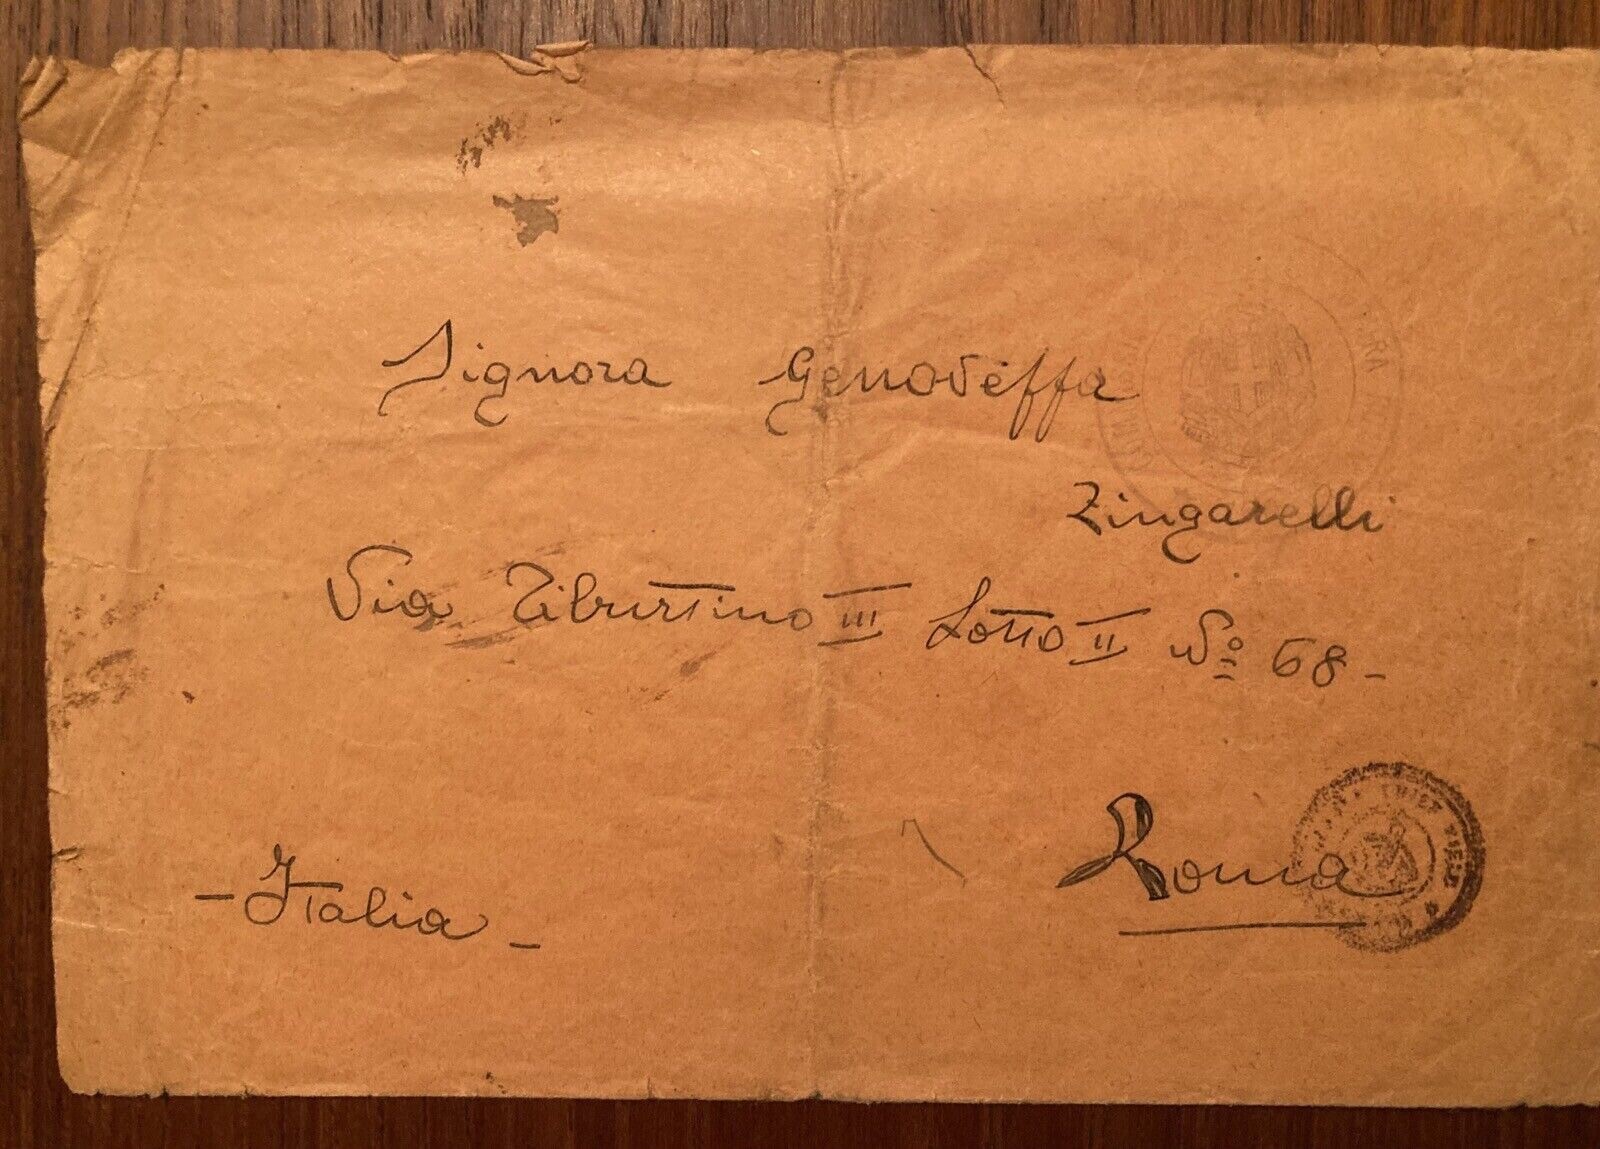 Signora Genoveffa
Zingarelli
Via Tiburtino III Lotto II No 68 -
Roma
- Italia -